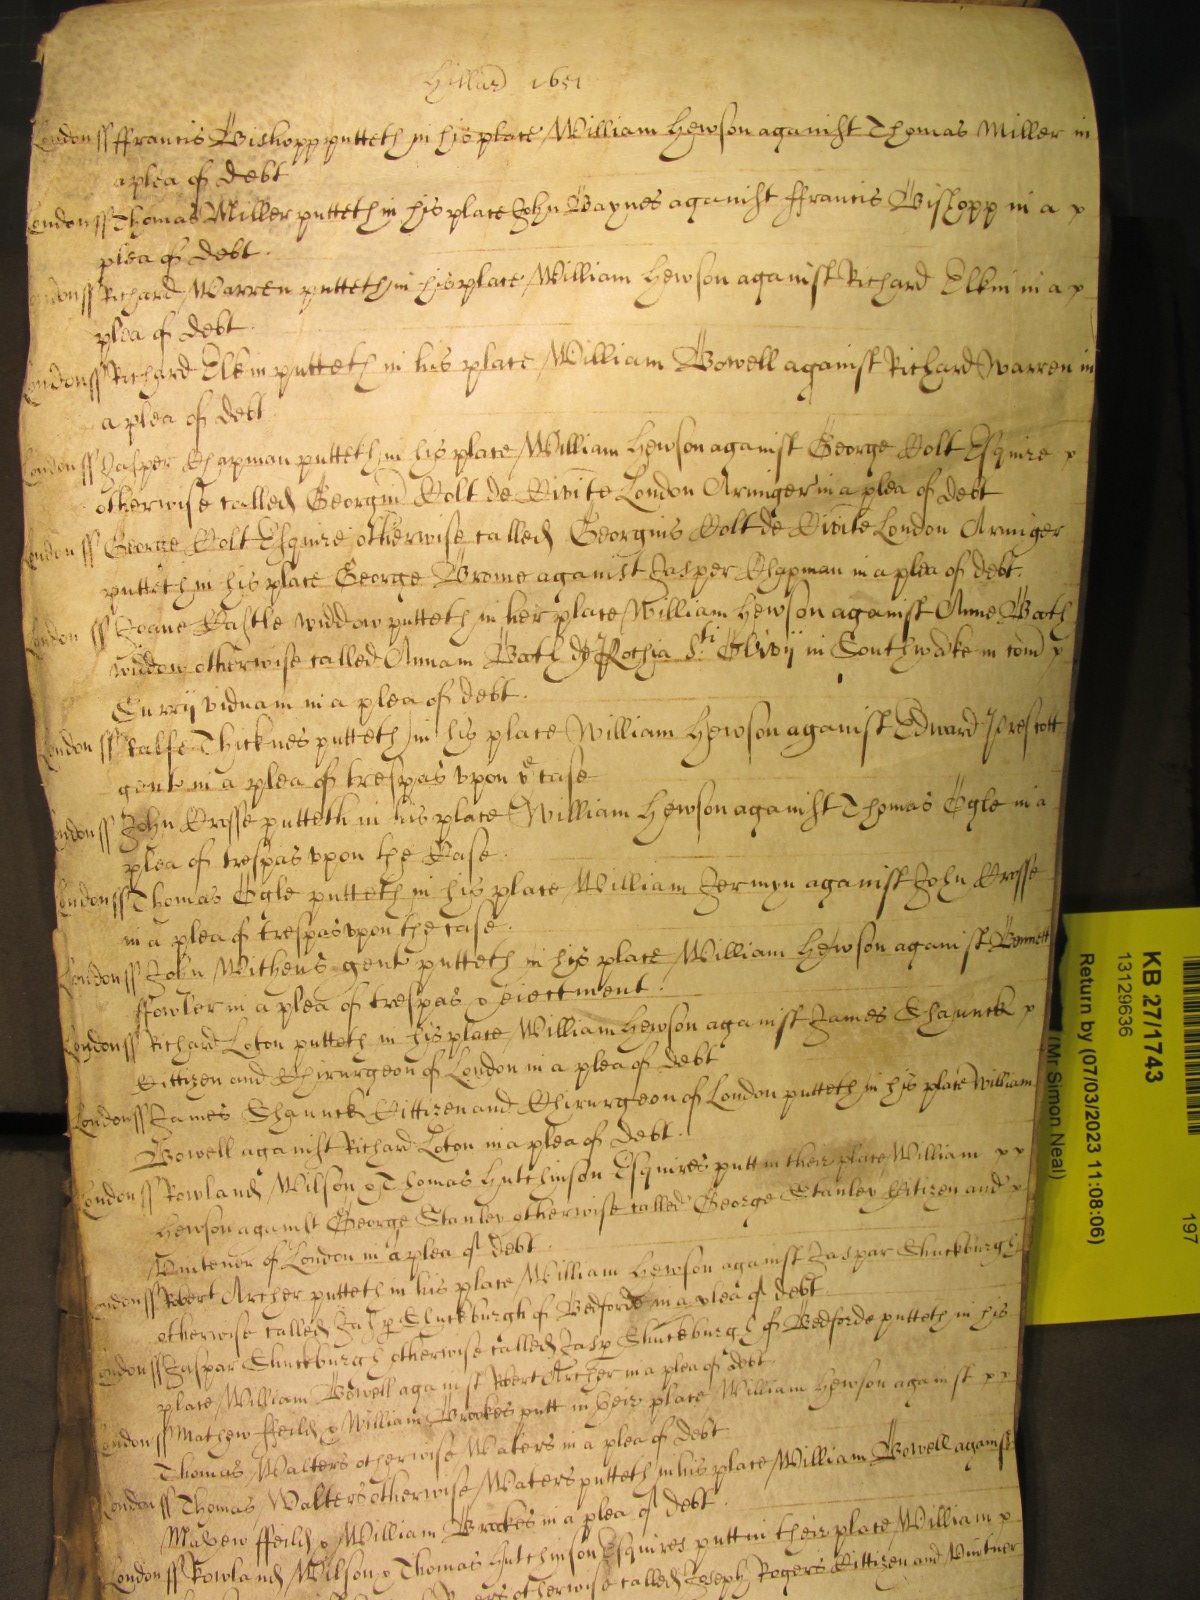 Hillar 1651
London ss ffrancis Bishopp putteth in his place William Hewson against Thomas Miller in
a plea of debt
London ss Thomas Miller putteth in his place John Baynes against ffrancis Bishopp in a
plea of debt.
London ss Richard Warren putteth in his place William Hewson against Richard Elkin in a
plea of debt.
London ss Richard Elkin putteth in his place William Bowell against Richard Warren in
a plea of debt
London ss Jasper Chapman putteth in his place William Hewson against George Colt Esquire
otherwise called Georgiu Colt de Civite London Armiger in a plea of debt
London ss George Colt Esquire otherwise called Georgius Colt de Civite London Armiger
putteth in his place George Brome against Jasper Chapman in a plea of debt.
London ss Joane Castle widdow putteth in her place William Hewson against Anne Bath
widdow otherwise called Annam Bath de Pochia Sti Olivij in Southwarke in com
Surrij viduam in a plea of debt.
London ss Ralfe Thicknes putteth in his place William Hewson against Edward Prescott
gent in a plea of trespas vpon ye case
London ss John Crosse putteth in his place William Hewson against Thomas Ogle in a
plea of trespas vpon the Case.
London ss Thomas Ogle putteth in his place William Jermyn against John Crosse
in a plea of trespas vpon the case.
London ss John Withens gent putteth in his place William Hewson against Bennett
ffowler in a plea of trespas & eiectment.
London ss Richard Loton putteth in his place William Hewson against James Shaunck
Cittizen and Chirurgeon of London in a plea of debt
London ss James Shaunck Cittizen and Chirurgeon of London putteth in his place William
Bowell against Richard Loton in a plea of debt.
London ss Rowland Wilson & Thomas Hutchinson Esquires putt in their place William
Hewson against George Stanley otherwise called George Stanley Citizen and
Vintener of London in a plea of debt.
London ss Robert Archer putteth in his place William Hewson against Jaspar Shuckburgh
otherwise called Jasp Shuckburgh of Bedforde in a plea of debt
London ss Jaspar Shuckburgh otherwise called Jasp Shuckburgh of Bedforde putteth in his
place William Bowell against Robert Archer in a plea of debt
London ss Mathew ffeild & William Brookes putt in their place William Hewson against
Thomas Walters otherwise Waters in a plea of debt
London ss Thomas Walters otherwise Waters putteth in his place William Bowell against
Mathew ffeild & William Brookes in a plea of debt.
London ss Rowland Wilson & Thomas Hutchinson Esquires putt in their place William
otherwise called Joseph Rogers Cittizen and Vintner
KB 27/1743
13129636
Return by (07/03/2023 11:08:06)
(Mr Simon Neal)
197